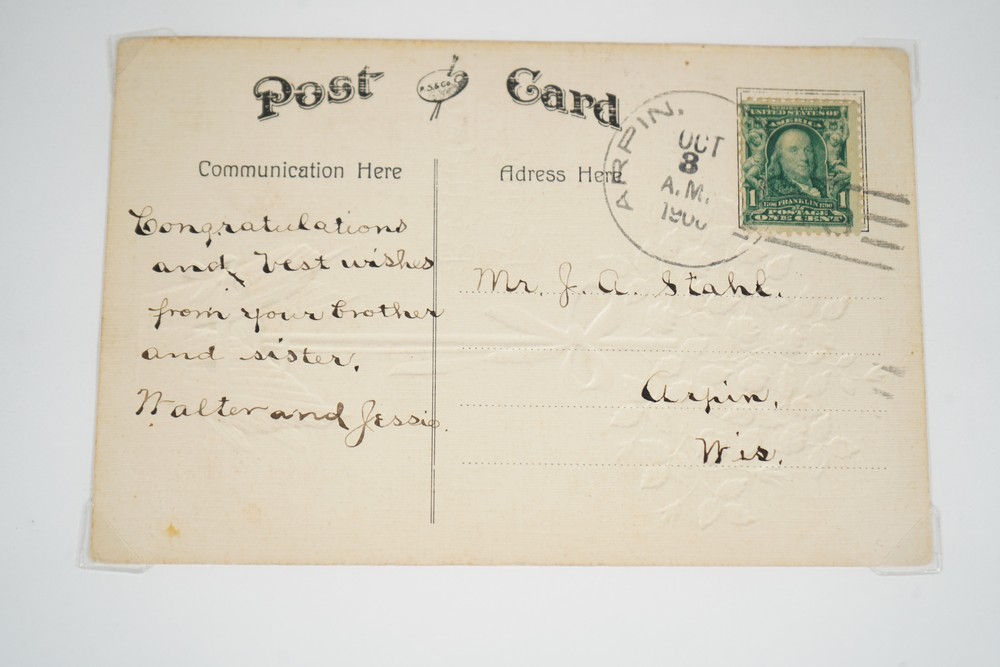 Post Card
Communication Here
Adress Here
ARPIN,
OCT
8
A.M.
UNITED STATES OF
AMERICA
1 1
1706 FRANKLIN 1790
POSTAGE
ONE CENT
Congratulations
and best wishes
from your brother
and sister.
Walter and Jessie.
Mr. J. A. Stahl.
Arpin,
Wis.